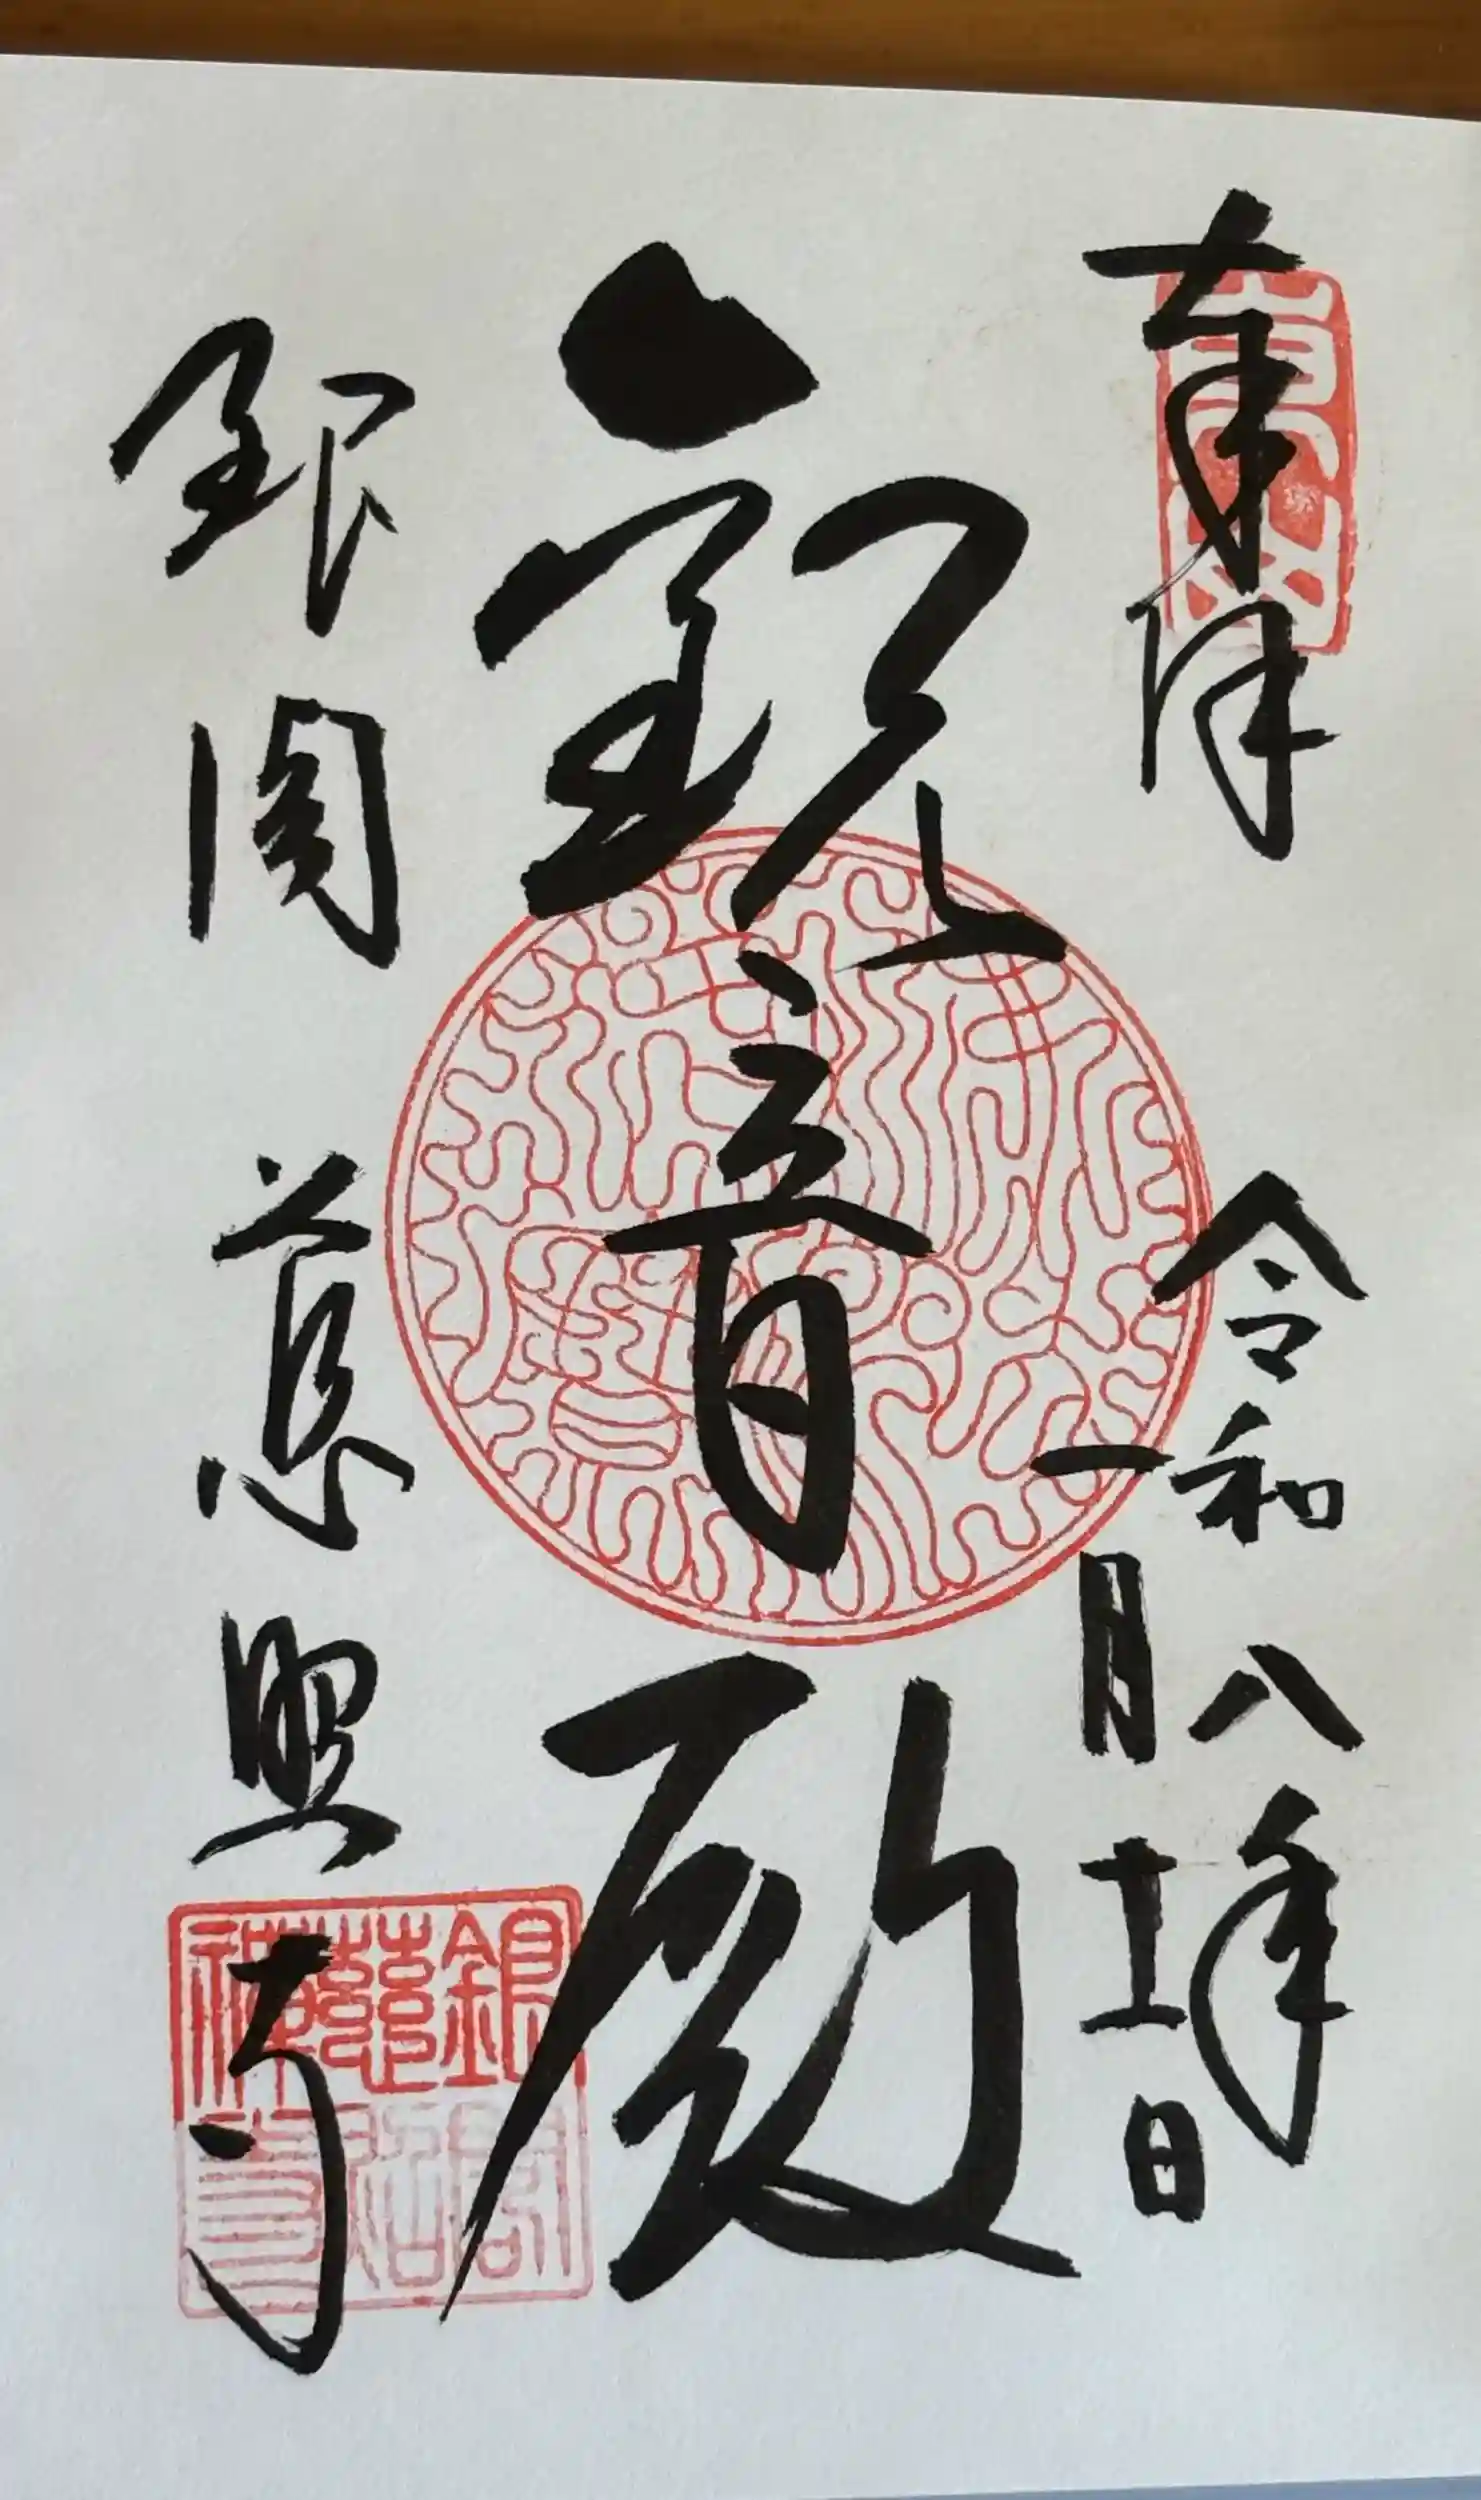 奉拝
令和八年
一月十二日
観音殿
銀閣 慈照寺
銀閣
慈照
禅寺